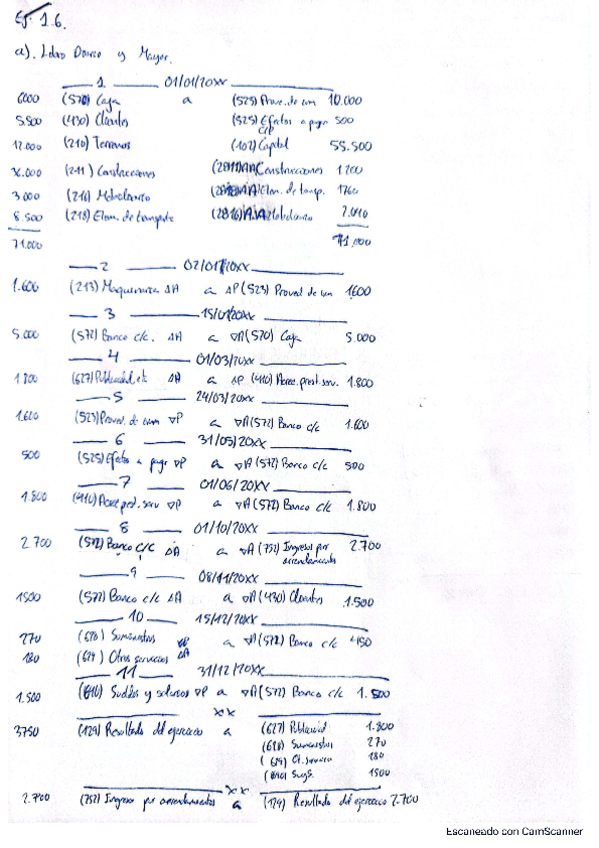 Ej. 1.6.
a). Libro Diario y Mayor.
1 01/01/20xx
6000 (570) Caja a (523) Prove. de inm 10.000
5.500 (430) Clientes (525) Efectos a pagar 500
c/p
12.000 (210) Terrenos (102) Capital 55.500
36.000 (211) Construcciones Construcciones 1200
3.000 (216) Mobiliario Elem. de transp. 1760
8.500 (218) Elem. de transporte (2816) A.A Mobiliario 2.040
71.000 71.000
2 02/01/20xx
1.600 (213) Maquinaria ΔA a ΔP (523) Proveed de inm 1600
3 15/01/20xx
5.000 (572) Banco c/c. ΔA a ∇A (570) Caja 5.000
4 01/03/20xx
1.800 (627) Publicidad, etc ΔA a ΔP (410) Acree. prest. serv. 1.800
5 24/03/20XX
1.600 (523) Proved. de inm ∇P a ∇A (572) Banco c/c 1.600
6 31/05/20XX
500 (525) Efectos a pagar ∇P a ∇A (572) Banco c/c 500
7 01/06/20XX
1.800 (410) Acree prest. serv ∇P a ∇A (572) Banco c/c 1.800
8 01/10/20XX
2.700 (572) Banco C/C ΔA a ∇A (752) Ingresos por 2.700
arrendamientos
9 08/11/20xx
1500 (572) Banco c/c ΔA a ∇A (430) Clientes 1.500
10 15/12/20XX
270 (628) Suministros a ∇A (572) Banco c/c 450
180 (629) Otros servicios ΔA
11 31/12/20XX
1.500 (640) Sueldos y salarios ∇P a ∇A (572) Banco c/c 1.500
xx
3750 (129) Resultado del ejercicio a (627) Publicidad 1.800
(628) Suministros 270
(629) Ot. servicio 180
(640) SyS. 1500
xx
2.700 (752) Ingresos por arrendamientos a (129) Resultado del ejercicio 2.700
Escaneado con CamScanner